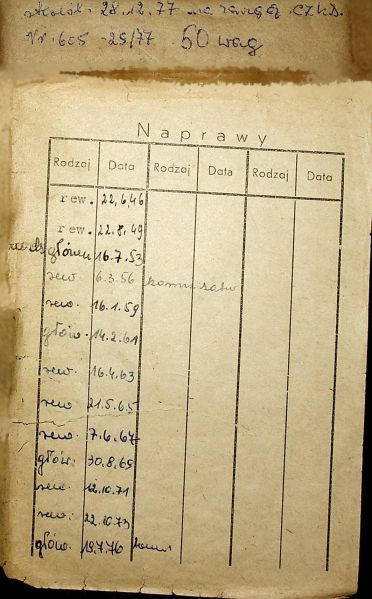 28.12.77 na
Nr. 605-25/77 50 wag
Naprawy
Rodzaj Data Rodzaj Data Rodzaj Data
rew. 22,6,46
rew. 22.8.49
główn 16.7.53
rew. 6.3.56
rew. 16.1.59
głów. 14.2.61
rew. 16.4.63
rew. 21.5.65
rew. 7.6.67
głów. 30.8.69
rew. 12.10.71
rew. 22.10.73
głów. 19.7.76